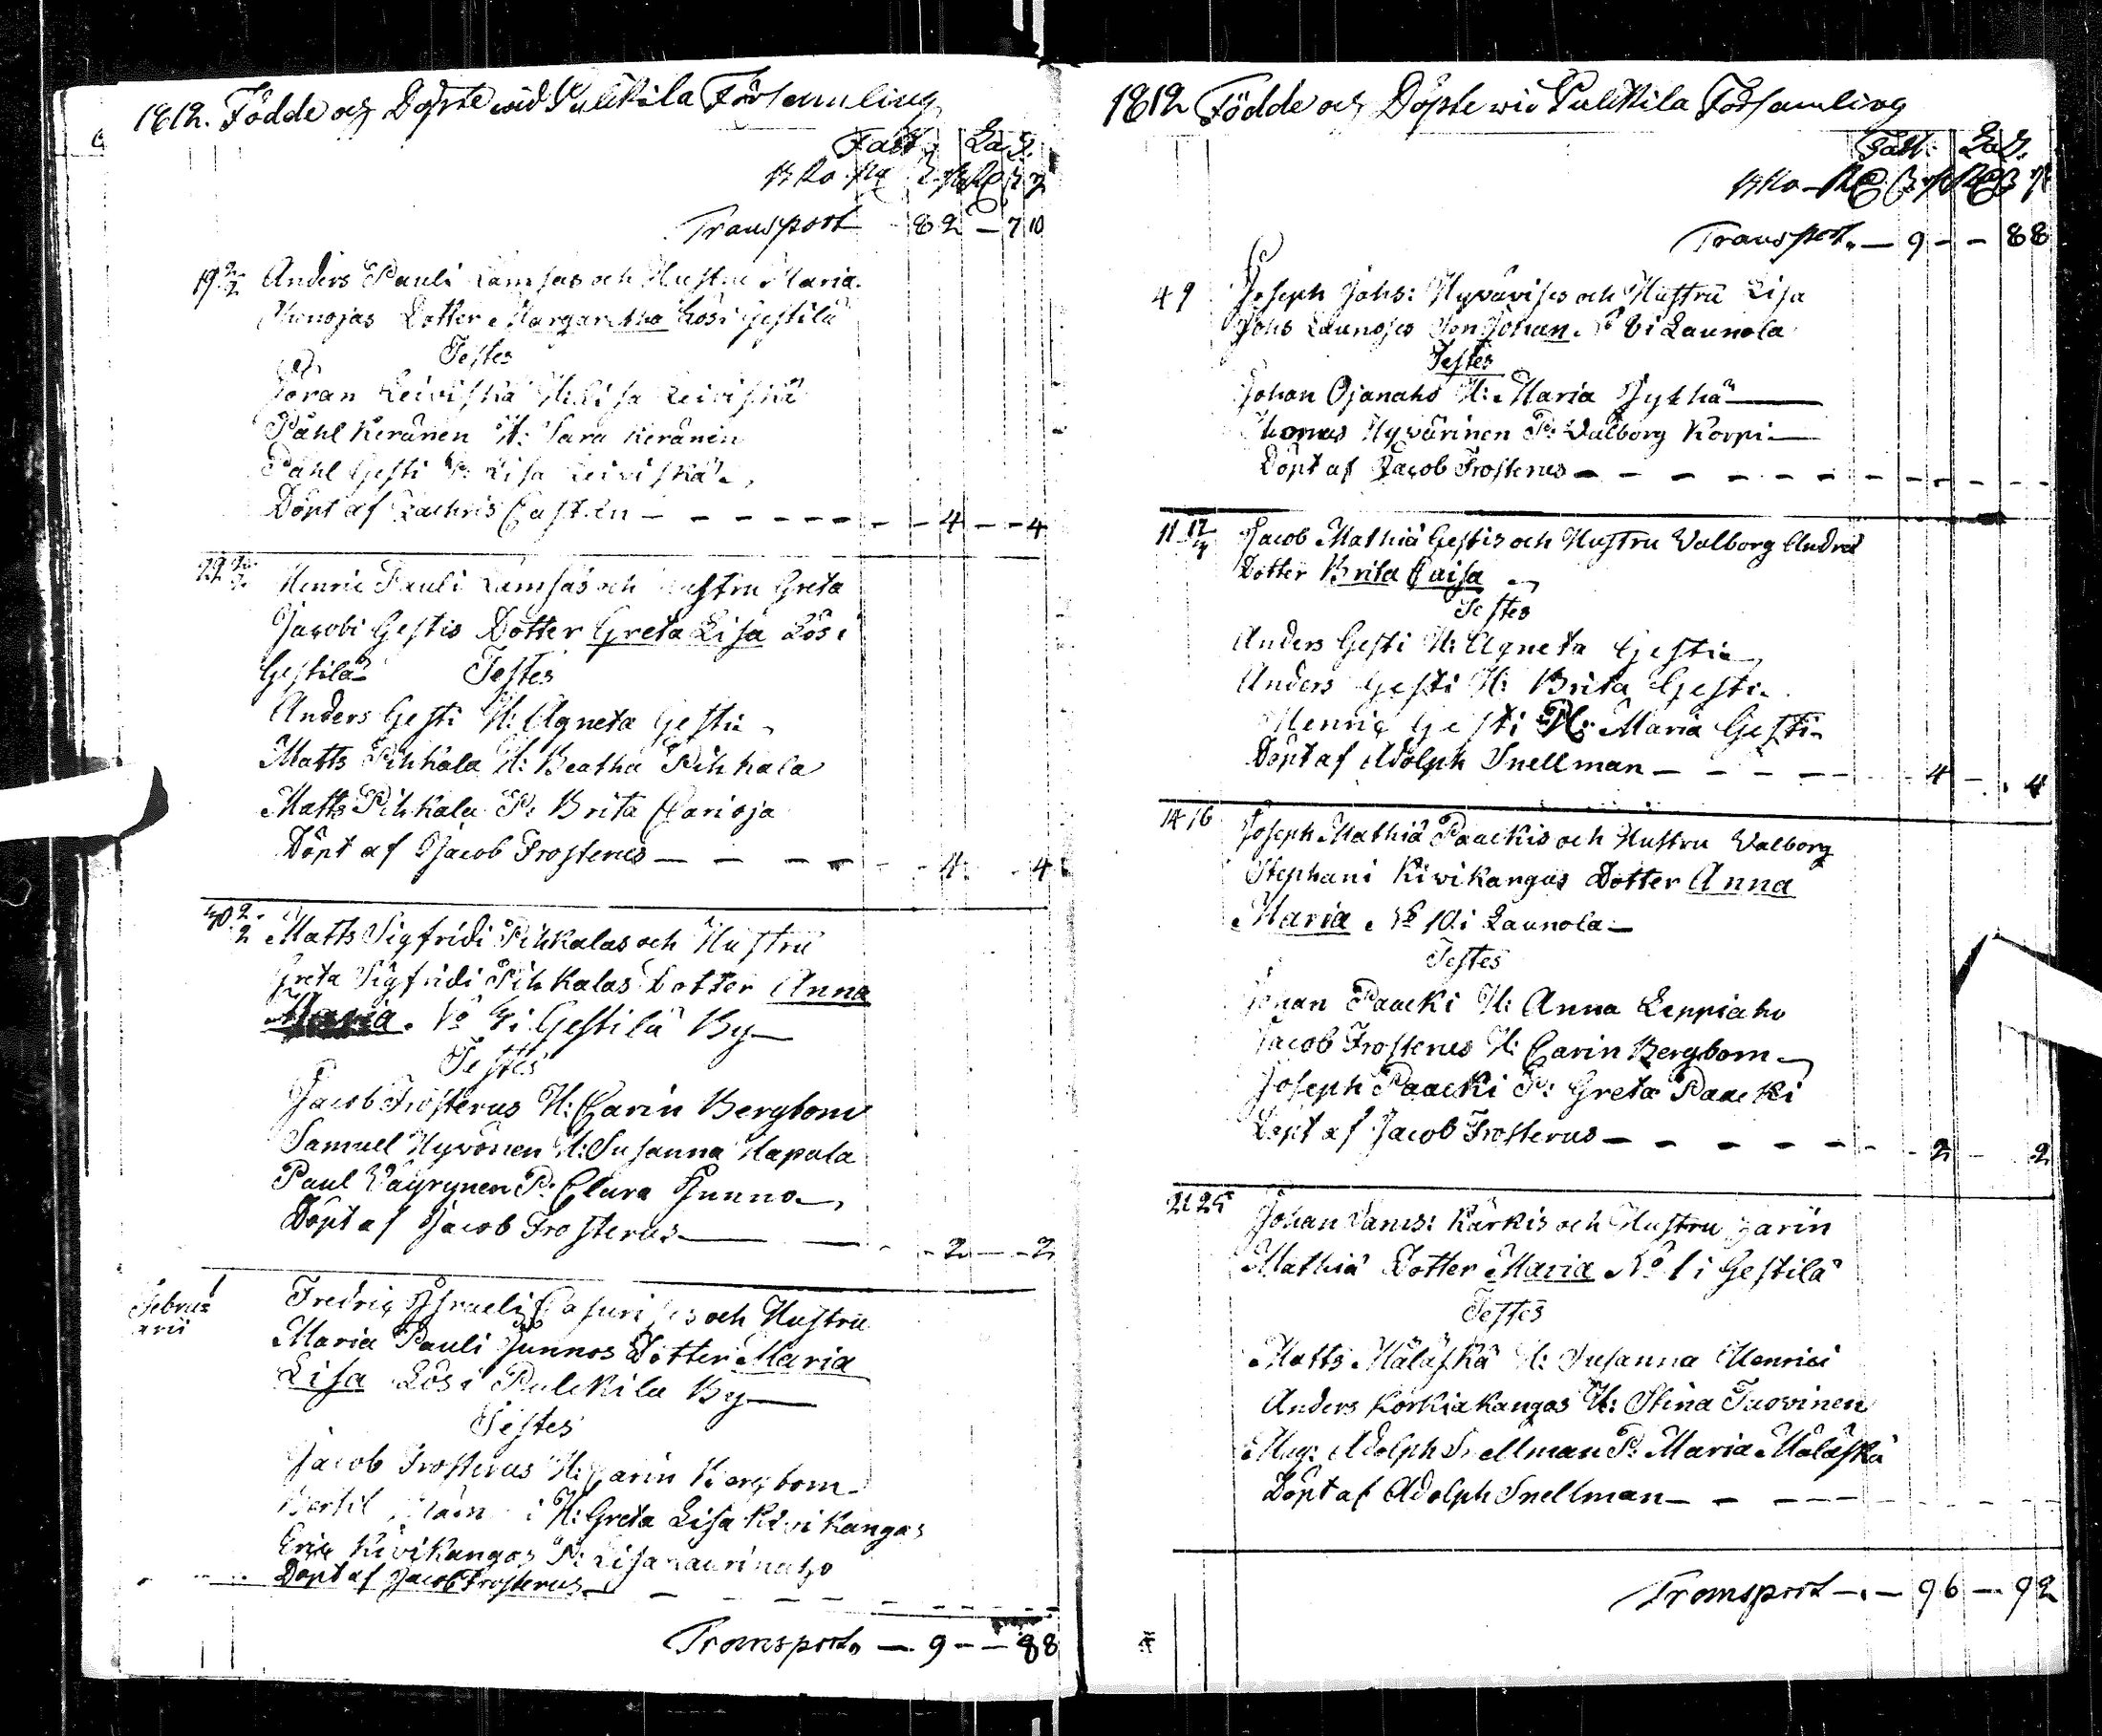 1812. Födde och Döpte wid Pulkkila Församling
Fatt: Lad.
B Ko
Transport 8 2 — 7 10
19 2/2 Anders Pauli Lamsas och Hustru Maria
Dotter Margaretha Lös i Gestilä
Testes
Jöran Leiviskä H: Lisa Leiviskä
Påhl Keränen H: Sara Keränen
Påhl Gesti P: Lisa Leiviskä
Döpt af Zachris Castrén — 4 — 4
22 Henric Pauli Lamsas och Hustru Greta
Jacobi Gestis Dotter Greta Lisa Lös i
Gestilä Testes
Anders Gesti H: Agneta Gesti
Matts Pihkala H: Beatha Pihkala
Matts Pihkala P: Brita Carioja
Döpt af Jacob Frosterus — 4 4
30 2/2 Matts Sigfridi Pihkalas och Hustru
Greta Sigfridi Pihkalas Dotter Anna
Maria. No i Gestilä By
Testes
Jacob Frosterus H: Carin Bergbom
Samuel Hyvönen H: Susanna Hapala
Paul Väyrynen P: Clara Junno
Döpt af Jacob Frosterus — 2 — 2
Febru= 1
arii
Fredric Israeli och Hustru
Maria Pauli Junnos Dotter Maria
Lisa Lös i Pulkkila By
Testes
Jacob Frosterus H: Carin Bergbom
Bertil H: Greta Lisa Kivikangas
Eric Kivikangas P: Lisa Laurinaho
Döpt af Jacob Frosterus
Transport — 9 — 88
1812 Födde och Döpte wid Pulkkila Församling
Fatt: Lad.
B Ko
Transport. — 9 — — 88
4 9 Joseph Johs: Hyvärises och Hustru Lisa
Johs Launoses Son Johan. No i Launola
Testes
Johan Ojanaho H: Maria Jykhä
Thomas Hyvärinen P: Valborg Korpi
Döpt af Jacob Frosterus
11 17 Jacob Mathiä Gestis och Hustru Valborg Andrä
Dotter Brita Caisa
Testes
Anders Gesti H: Agneta Gesti
Anders Gesti H: Brita Gesti
Henric Gesti H: Maria Gesti
Döpt af Adolph Snellman — 4 — 4
14 16 Joseph Mathiä Paackis och Hustru Valborg
Stephani Kivikangas Dotter Anna
Maria No 10 i Launola
Testes
Johan Paacki H: Anna Leppiaho
Jacob Frosterus H: Carin Bergbom
Joseph Paacki P: Greta Paacki
Döpt af Jacob Frosterus — 2 — 2
21 25 Johan Kärkis och Hustru Carin
Mathiä Dotter Maria No 1 i Gestilä
Testes
Matts Mäläskä H: Susanna Henrici
Anders Korkiakangas H: Stina Tuovinen
Mag: Adolph Snellman P: Maria Mäläskä
Döpt af Adolph Snellman
Transport — 96 — 92